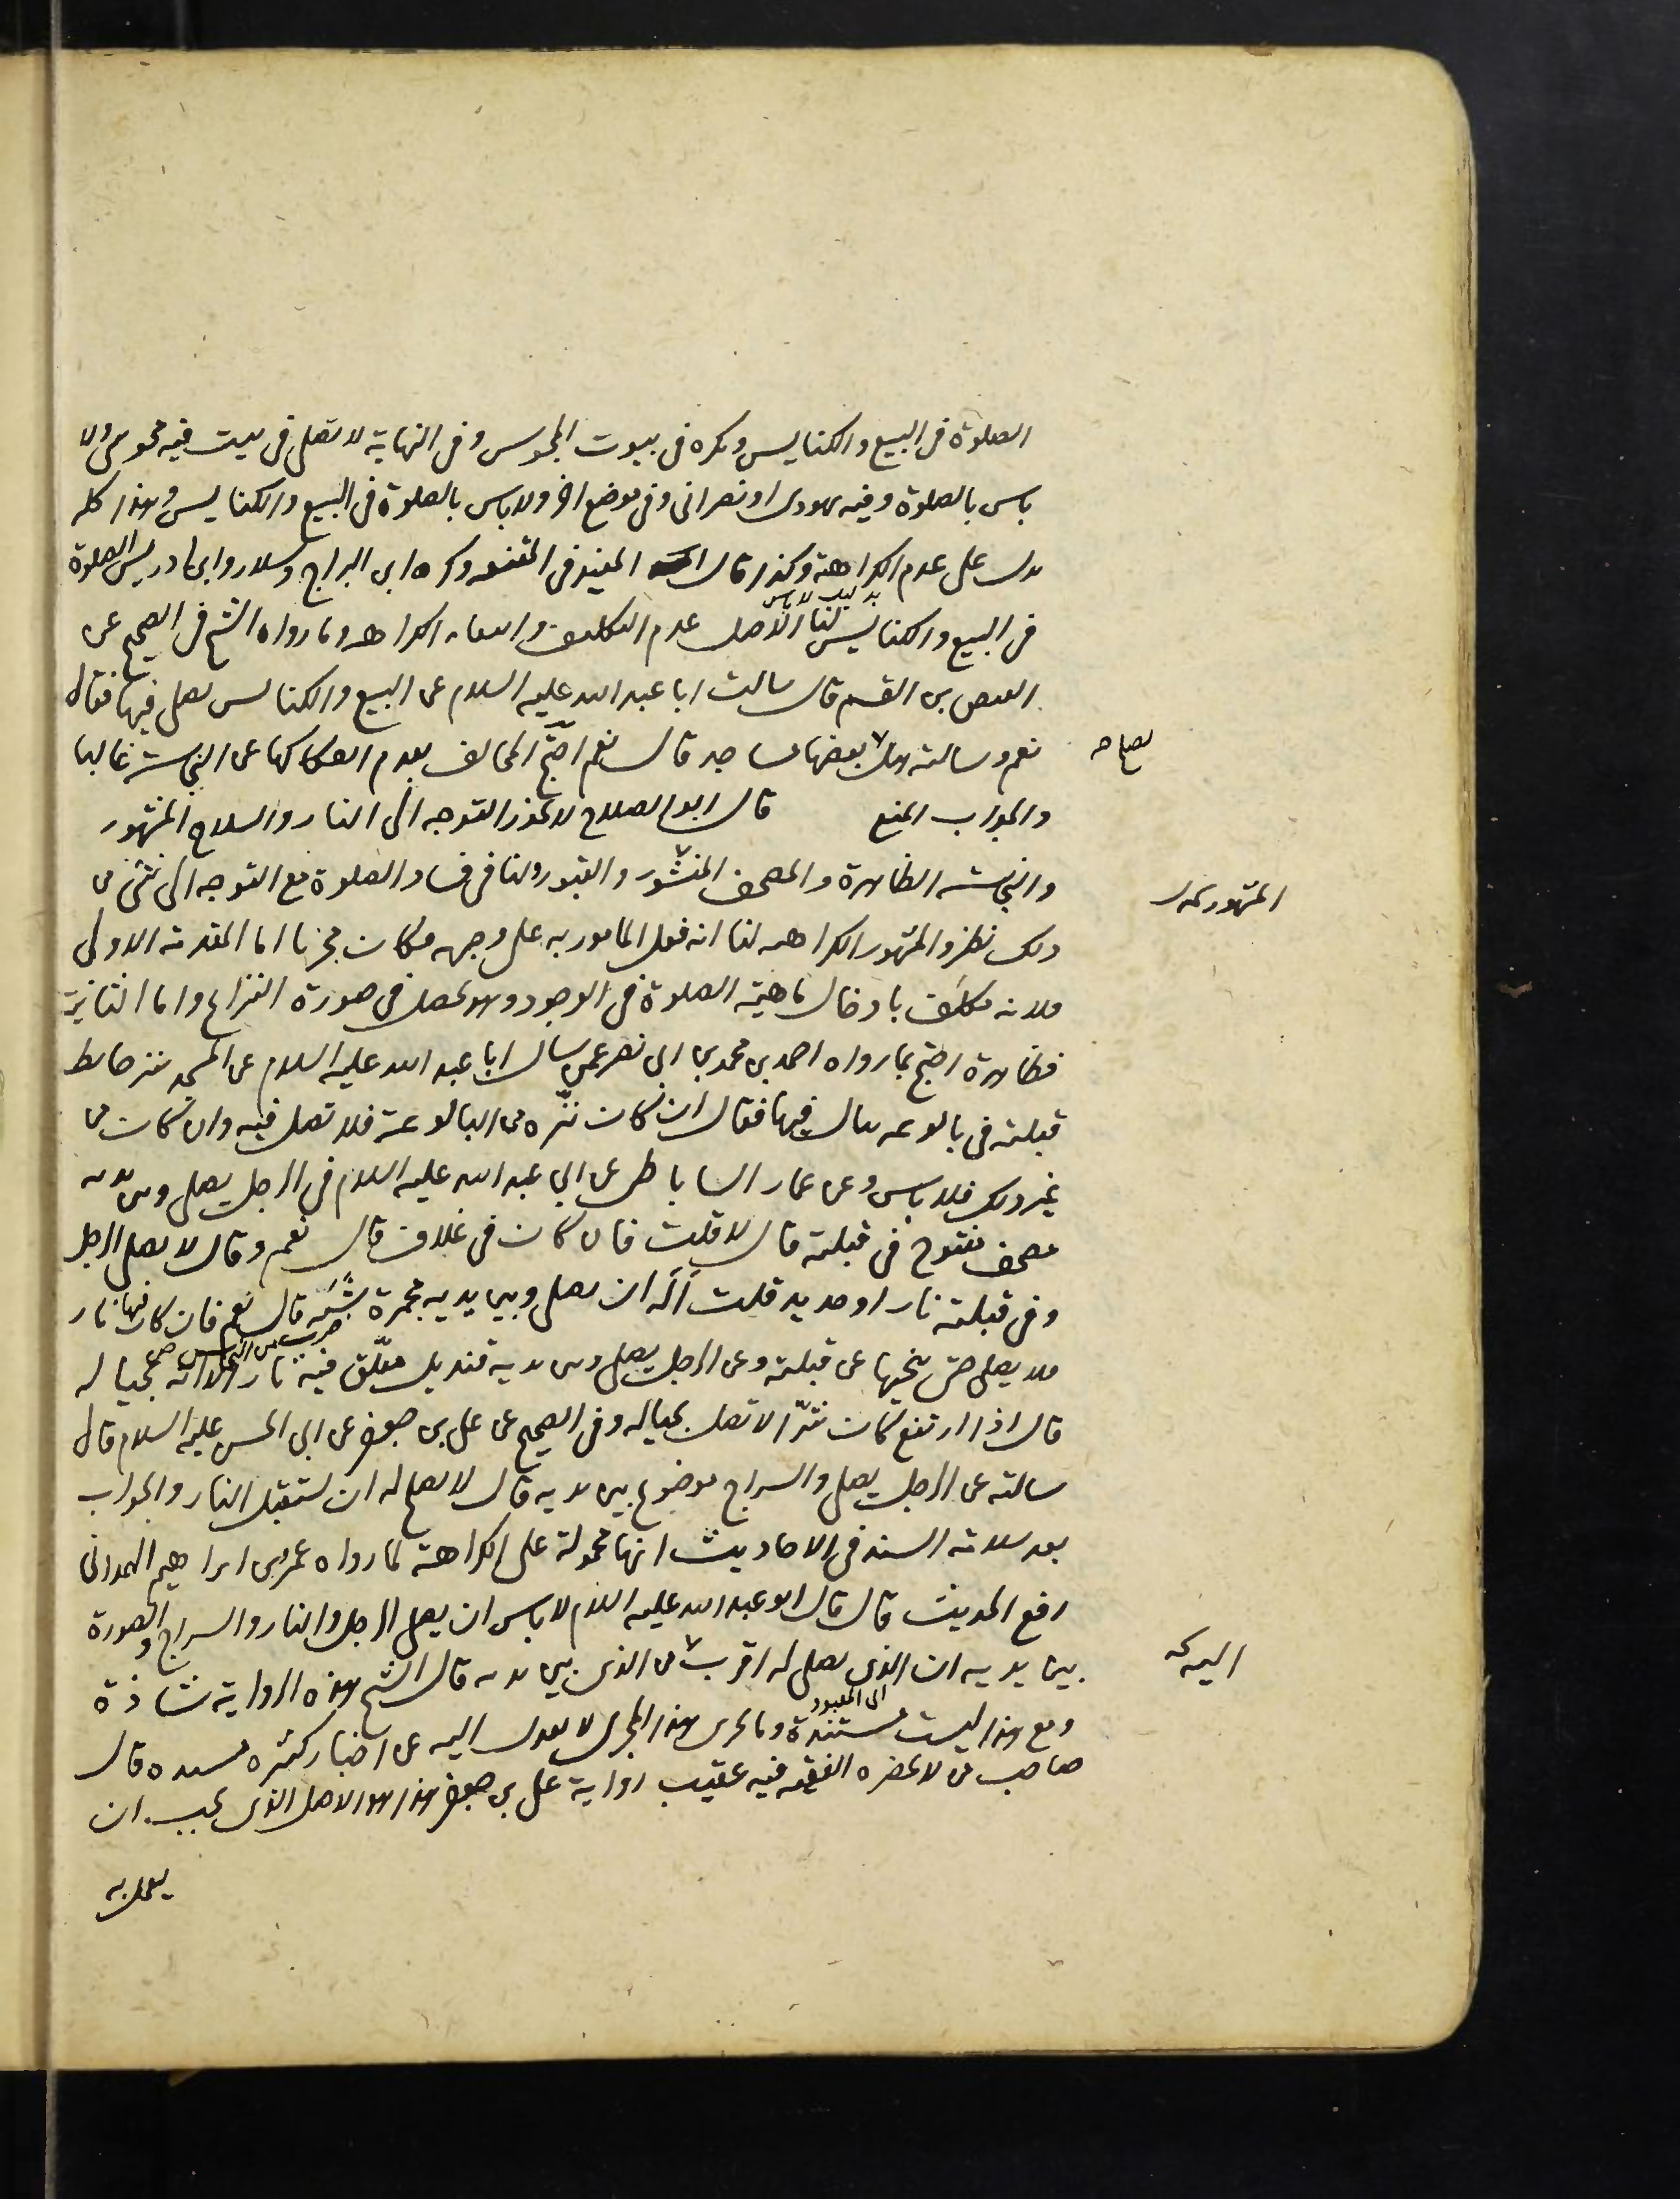 الصلوة فى البيع والكنايس ويكره فى بيوت المجوس وفى النهاية لا تصلى فى بيت فيه مجوسى ولا
باس بالصلوة وفيه يهودى او نصرانى وفى موضع اخر ولا باس بالصلوة فى البيع والكنايس وهذا كله
يدل على عدم الكراهة وكذا قال المفيد فى المقنعه وكره ابن البراج وسلار وابن ادريس الصلوة
فى البيع والكنايس لنا الاصل عدم التكليف وانتفاء الكراهه وما رواه الشيخ فى الصحيح عن
العيص بن القسم قال سالت ابا عبد الله عليه السلام عن البيع والكنايس يصلى فيها فقال
نعم وسالته هل بعضها مساجد قال نعم احتج المخالف بعدم انفكاكها عن النجاسة غالبا
يصلح
والجواب المنع قال ابو الصلاح لا يجوز التوجه الى النار والسلاح المشهور
والنجاسه الظاهرة والمصحف المنشور والقبور ولنا فى فساد الصلوة مع التوجه الى شىء من
المشهور
ذلك نظر والمشهور الكراهه لنا انه فعل المامور به على وجهه فكان مجزيا اما المقدمة الاولى
فلانه مكلف بادخال ماهية الصلوة فى الوجود وهو يحصل فى صورة النزاع واما الثانية
فظاهرة احتج بما رواه احمد بن محمد بن ابى نصر عمن سال ابا عبد الله عليه السلام عن المسجد ينز حايط
قبلته فى بالوعه يبال فيها فقال ان كان نزه من البالوعة فلا تصل فيه وان كان من
غير ذلك فلا باس وعن عمار الساباطى عن ابى عبد الله عليه السلام فى الرجل يصلى وبين يديه
مصحف مفتوح فى قبلته قال لا قلت فان كان فى غلاف قال نعم وقال لا يصلى الرجل
وفى قبلته نار او حديد قلت أله ان يصلى وبين يديه مجمرة شبه قال نعم فان كان فيها نار
فلا يصلى حتى ينحيها عن قبلته وعن الرجل يصلى وبين يديه قنديل معلق فيه نار الا انه بحياله
قال اذا ارتفع كان شرّا لا تصل بحياله وفى الصحيح عن على بن جعفر عن ابى الحسن عليه السلام قال
سالته عن الرجل يصلى والسراج موضوع بين يديه قال لا يصلح له ان يستقبل النار والجواب
بعد سلامة السند فى الاحاديث انها محمولة على الكراهة لما رواه عمرو بن ابراهيم الهمدانى
رفع الحديث قال قال ابو عبد الله عليه السلام لا باس ان يصلى الرجل والنار والسراج والصورة
بين يديه ان الذى يصلى له اقرب من الذى بين يديه قال الشيخ هذه الرواية شاذة
اليه
ومع هذا ليست مستندة الى المعبود وما يجرى هذا المجرى لا يعدل اليه عن اخبار كثيره مسنده قال
صاحب من لا يحضره الفقيه فيه عقيب رواية على بن جعفر هذا هو الاصل الذى يجب ان
يعمل به